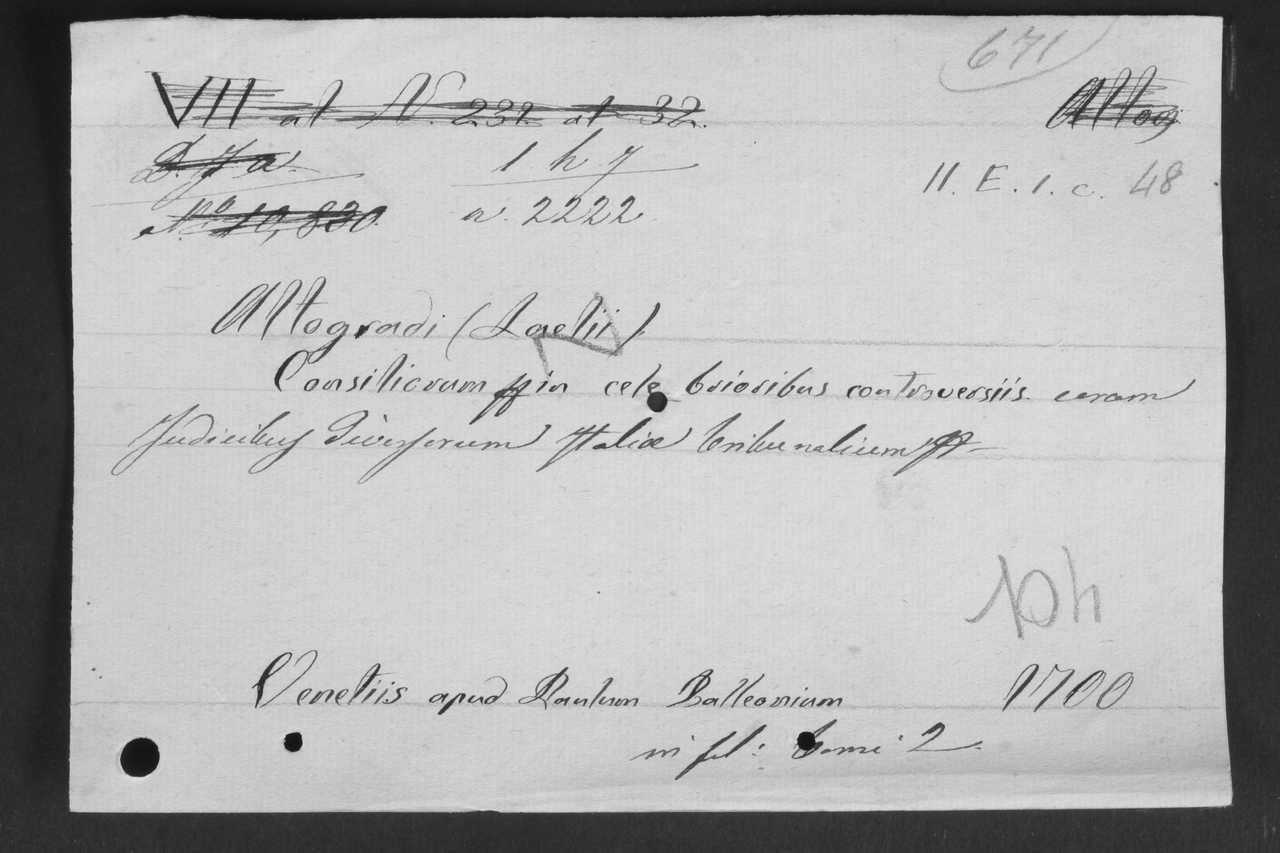 671
VII at N. 232. at 32.
Altog
D. J a.
1 h y
II. E. 1. c. 48
No 10,830
a. 2222
Altogradi (Laelii).
Consiliorum in celebrioribus controversiis coram
Judicibus diversorum Italiæ tribunalium
Venetiis apud Paulum Balleonium 1700
in fol: tomi 2.